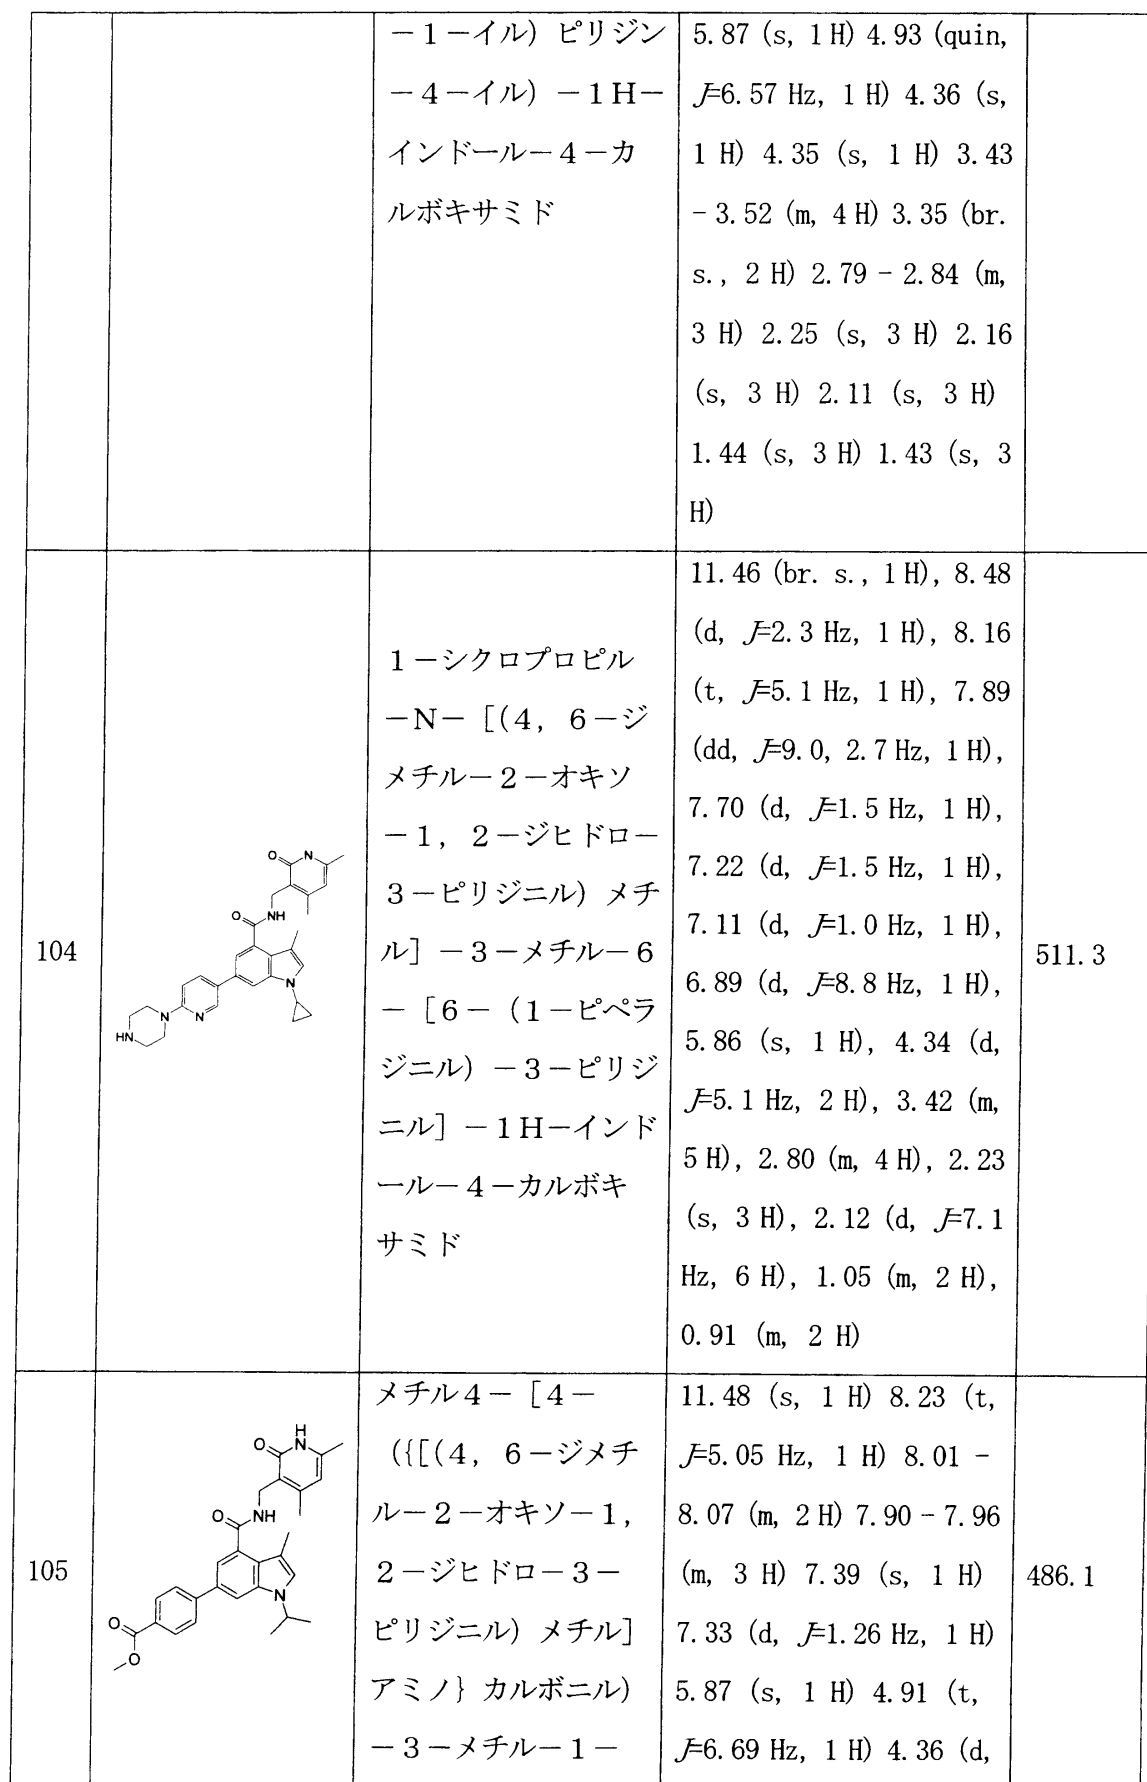 －1－イル）ピリジン
－4－イル）－1H－
インドール－4－カ
ルボキサミド
5.87 (s, 1 H) 4.93 (quin,
J=6.57 Hz, 1 H) 4.36 (s,
1 H) 4.35 (s, 1 H) 3.43
- 3.52 (m, 4 H) 3.35 (br.
s., 2 H) 2.79 - 2.84 (m,
3 H) 2.25 (s, 3 H) 2.16
(s, 3 H) 2.11 (s, 3 H)
1.44 (s, 3 H) 1.43 (s, 3
H)
104
O
N
O
NH
N
N
N
HN
1－シクロプロピル
－N－［(4，6－ジ
メチル－2－オキソ
－1，2－ジヒドロ－
3－ピリジニル）メチ
ル］－3－メチル－6
－［6－（1－ピペラ
ジニル）－3－ピリジ
ニル］－1H－インド
ール－4－カルボキ
サミド
11.46 (br. s., 1 H), 8.48
(d, J=2.3 Hz, 1 H), 8.16
(t, J=5.1 Hz, 1 H), 7.89
(dd, J=9.0, 2.7 Hz, 1 H),
7.70 (d, J=1.5 Hz, 1 H),
7.22 (d, J=1.5 Hz, 1 H),
7.11 (d, J=1.0 Hz, 1 H),
6.89 (d, J=8.8 Hz, 1 H),
5.86 (s, 1 H), 4.34 (d,
J=5.1 Hz, 2 H), 3.42 (m,
5 H), 2.80 (m, 4 H), 2.23
(s, 3 H), 2.12 (d, J=7.1
Hz, 6 H), 1.05 (m, 2 H),
0.91 (m, 2 H)
511.3
105
H
O
N
O
NH
N
O
O
メチル4－［4－
（{[(4，6－ジメチ
ル－2－オキソ－1，
2－ジヒドロ－3－
ピリジニル）メチル］
アミノ｝カルボニル）
－3－メチル－1－
11.48 (s, 1 H) 8.23 (t,
J=5.05 Hz, 1 H) 8.01 -
8.07 (m, 2 H) 7.90 - 7.96
(m, 3 H) 7.39 (s, 1 H)
7.33 (d, J=1.26 Hz, 1 H)
5.87 (s, 1 H) 4.91 (t,
J=6.69 Hz, 1 H) 4.36 (d,
486.1